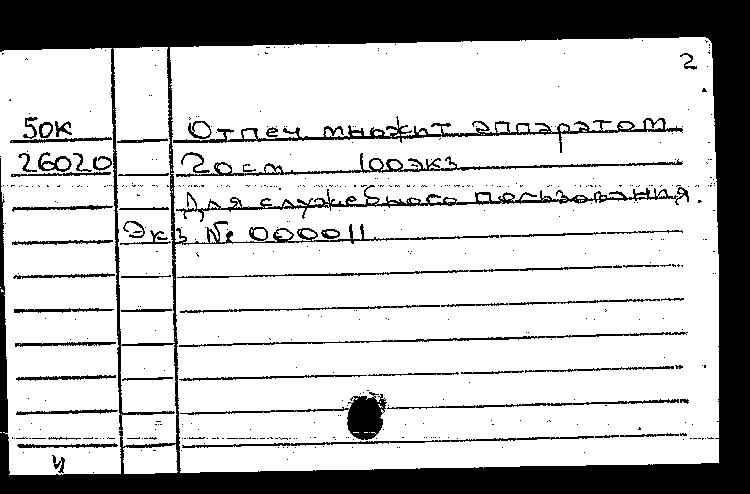 2
50К Отпеч множит аппаратом
26020 20см 100экз
Для служебного пользования.
Экз. № 000011
ч